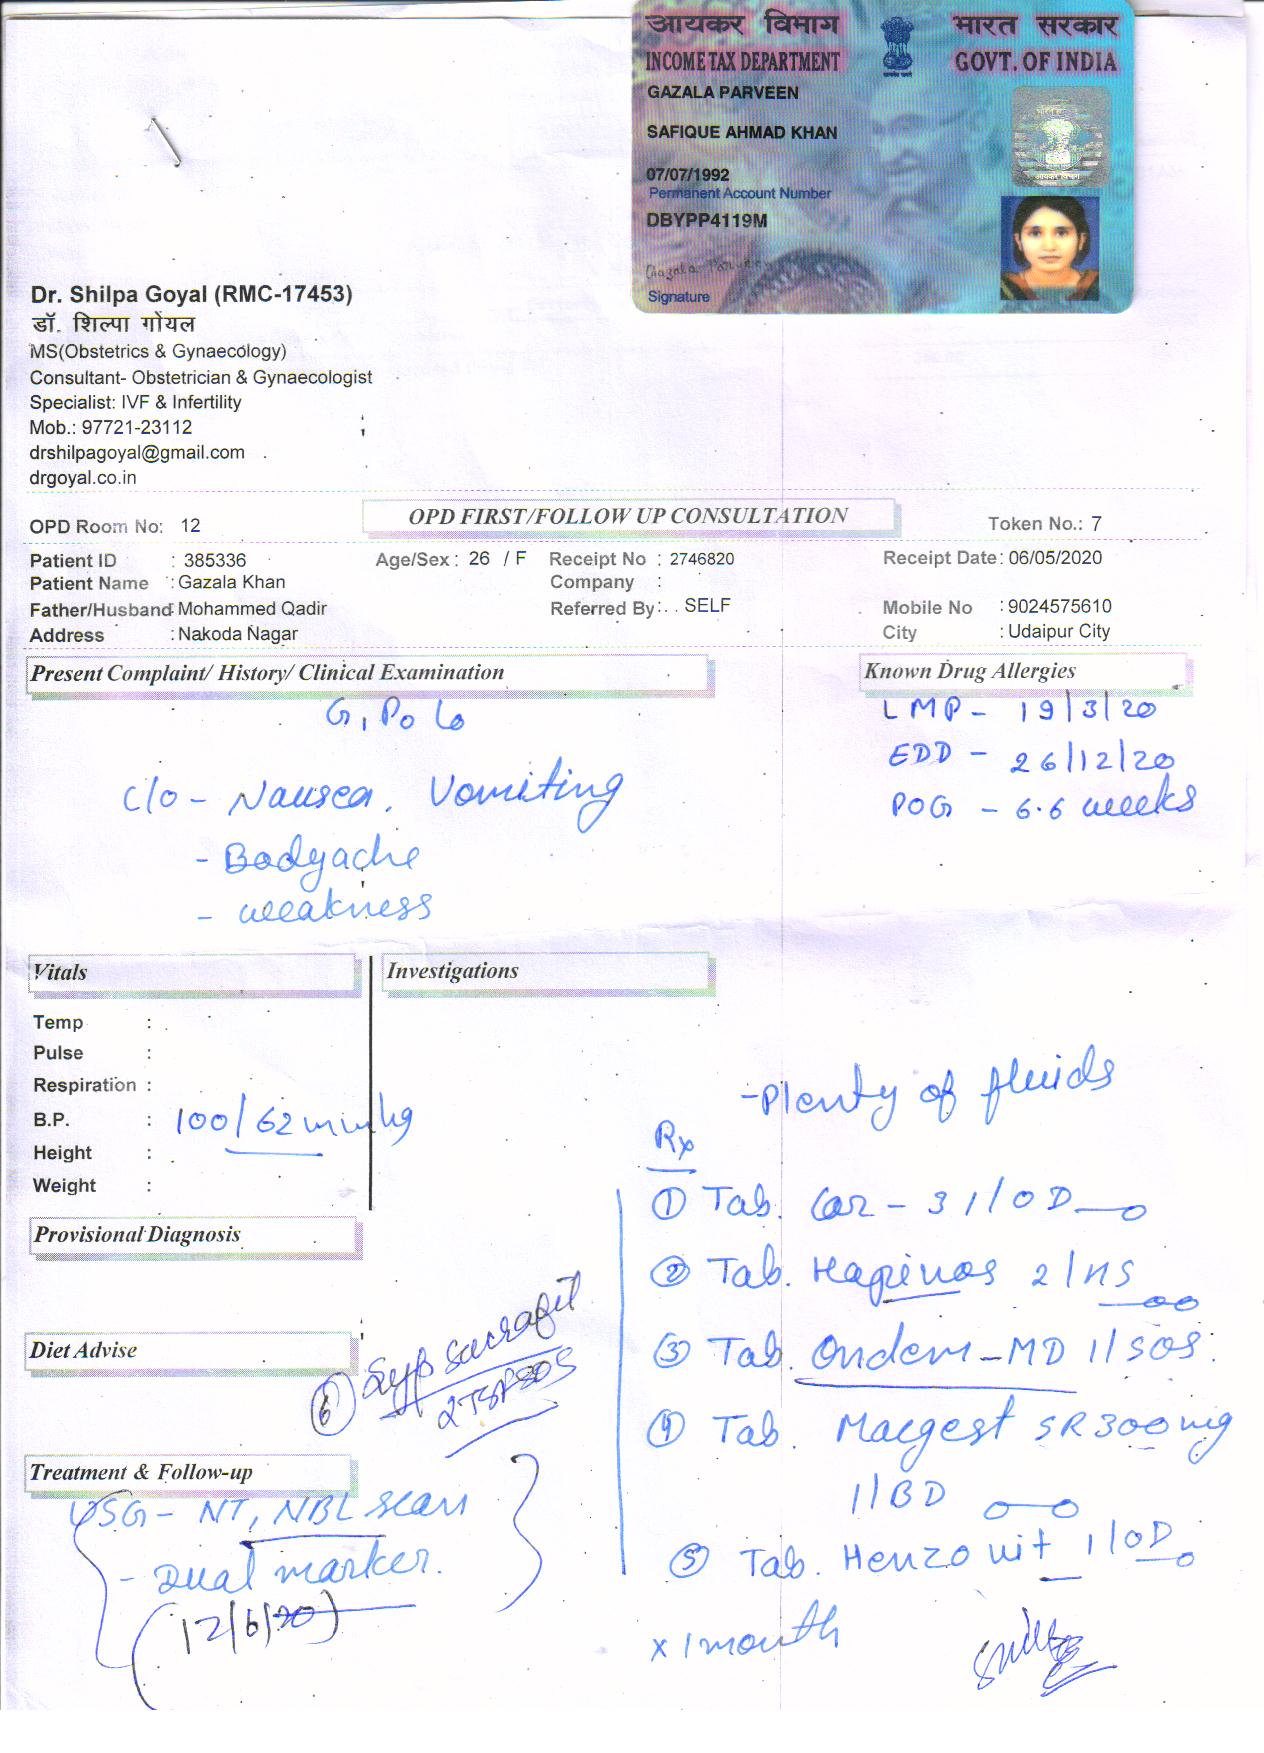 आयकर विभाग भारत सरकार
INCOME TAX DEPARTMENT GOVT. OF INDIA
GAZALA PARVEEN
SAFIQUE AHMAD KHAN
07/07/1992
Permanent Account Number
DBYPP4119M
आयकर विभाग
Gazala Parveen
Signature
Dr. Shilpa Goyal (RMC-17453)
डॉ. शिल्पा गोयल
MS(Obstetrics & Gynaecology)
Consultant- Obstetrician & Gynaecologist
Specialist: IVF & Infertility
Mob.: 97721-23112
drshilpagoyal@gmail.com
drgoyal.co.in
OPD Room No: 12 OPD FIRST/FOLLOW UP CONSULTATION Token No.: 7
Patient ID : 385336 Age/Sex : 26 / F Receipt No : 2746820 Receipt Date: 06/05/2020
Patient Name : Gazala Khan Company :
Father/Husband: Mohammed Qadir Referred By: . . SELF Mobile No : 9024575610
Address : Nakoda Nagar City : Udaipur City
Present Complaint/ History/ Clinical Examination Known Drug Allergies
G1P0L0 LMP - 19/3/20
EDD - 26/12/20
C/o - Nausea, Vomiting POG - 6.6 weeks
- Bodyache
- weakness
Vitals Investigations
Temp :
Pulse :
Respiration :
B.P. : 100/62 mmhg
Height :
Weight :
- Plenty of fluids
Rx
① Tab. Car-3 1/OD
② Tab. 2/HS
③ Tab. Ondem-MD 1/SOS
④ Tab. Macgest SR 300mg
1/BD
⑤ Tab. Henzowit 1/OD
x 1 month
Provisional Diagnosis
Diet Advise
⑥ Syp Sucrafil
2TSP SOS
Treatment & Follow-up
USG - NT, NBL scan
- Dual marker.
(12/6/20)